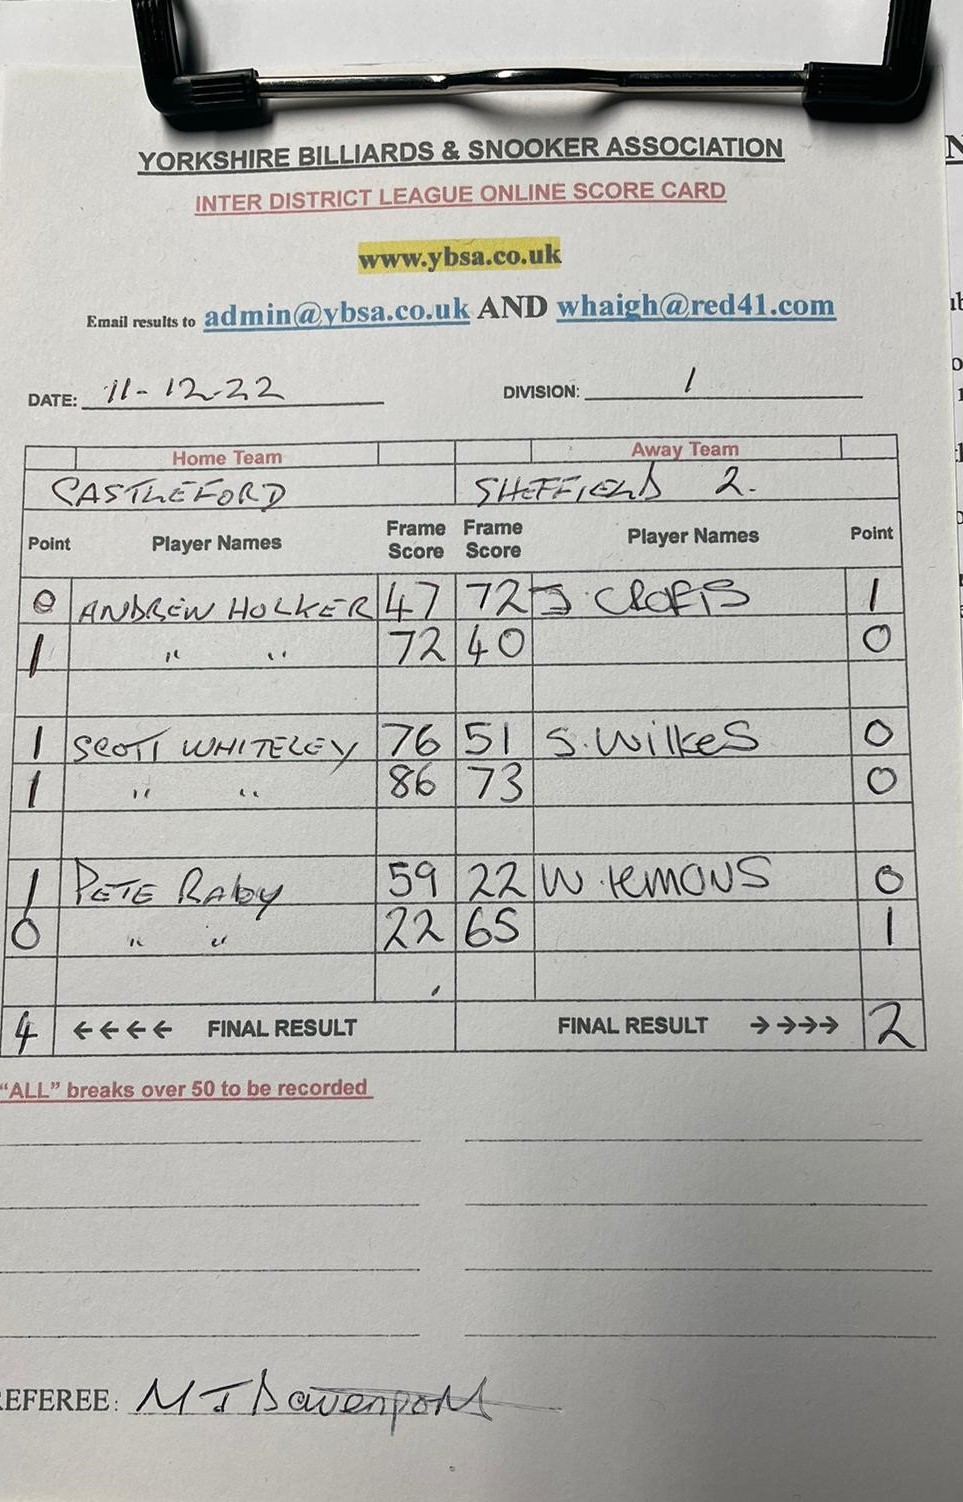 YORKSHIRE BILLIARDS & SNOOKER ASSOCIATION
INTER DISTRICT LEAGUE ONLINE SCORE CARD
www.ybsa.co.uk
Email results to admin@ybsa.co.uk AND whaigh@red41.com
DATE: 11-12-22 DIVISION: 1
Home Team Away Team
CASTLEFORD SHEFFIELD 2.
Point Player Names Frame Score Frame Score Player Names Point
0 ANDREW HOLKER 47 72 J. CROFTS 1
1 " " 72 40 0
1 SCOTT WHITELEY 76 51 S. WilkeS 0
1 " " 86 73 0
1 PETE RAby 59 22 W. 0
0 " " 22 65 1
4 ←←←← FINAL RESULT FINAL RESULT →→→→ 2
"ALL" breaks over 50 to be recorded
EFEREE: M J Davenport